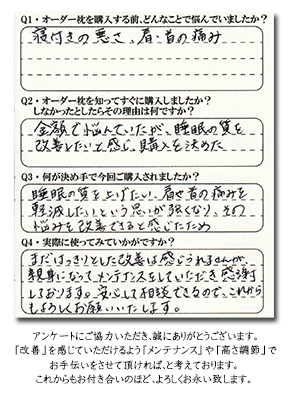 Q1・オーダー枕を購入する前、どんなことで悩んでいましたか?
寝付きの悪さ、肩・首の痛み
Q2・オーダー枕を知ってすぐに購入しましたか?
しなかったとしたらその理由は何ですか?
金額で悩んでいたが、睡眠の質を
改善したいと感じ、購入を決めた
Q3・何が決め手で今回ご購入されましたか?
睡眠の質を上げたい、肩や首の痛みを
軽減したいという思いが強くなり、その
悩みを改善できると感じたため
Q4・実際に使ってみていかがですか?
まだはっきりとした改善は感じられませんが、
親身になってメンテナンスをしていただき感謝
しております。安心して相談できるので、これから
もよろしくお願いいたします。
アンケートにご協力いただき、誠にありがとうございます。
「改善」を感じていただけるよう「メンテナンス」や「高さ調節」で
お手伝いをさせて頂ければ、と考えております。
これからもお付き合いのほど、よろしくお永い致します。